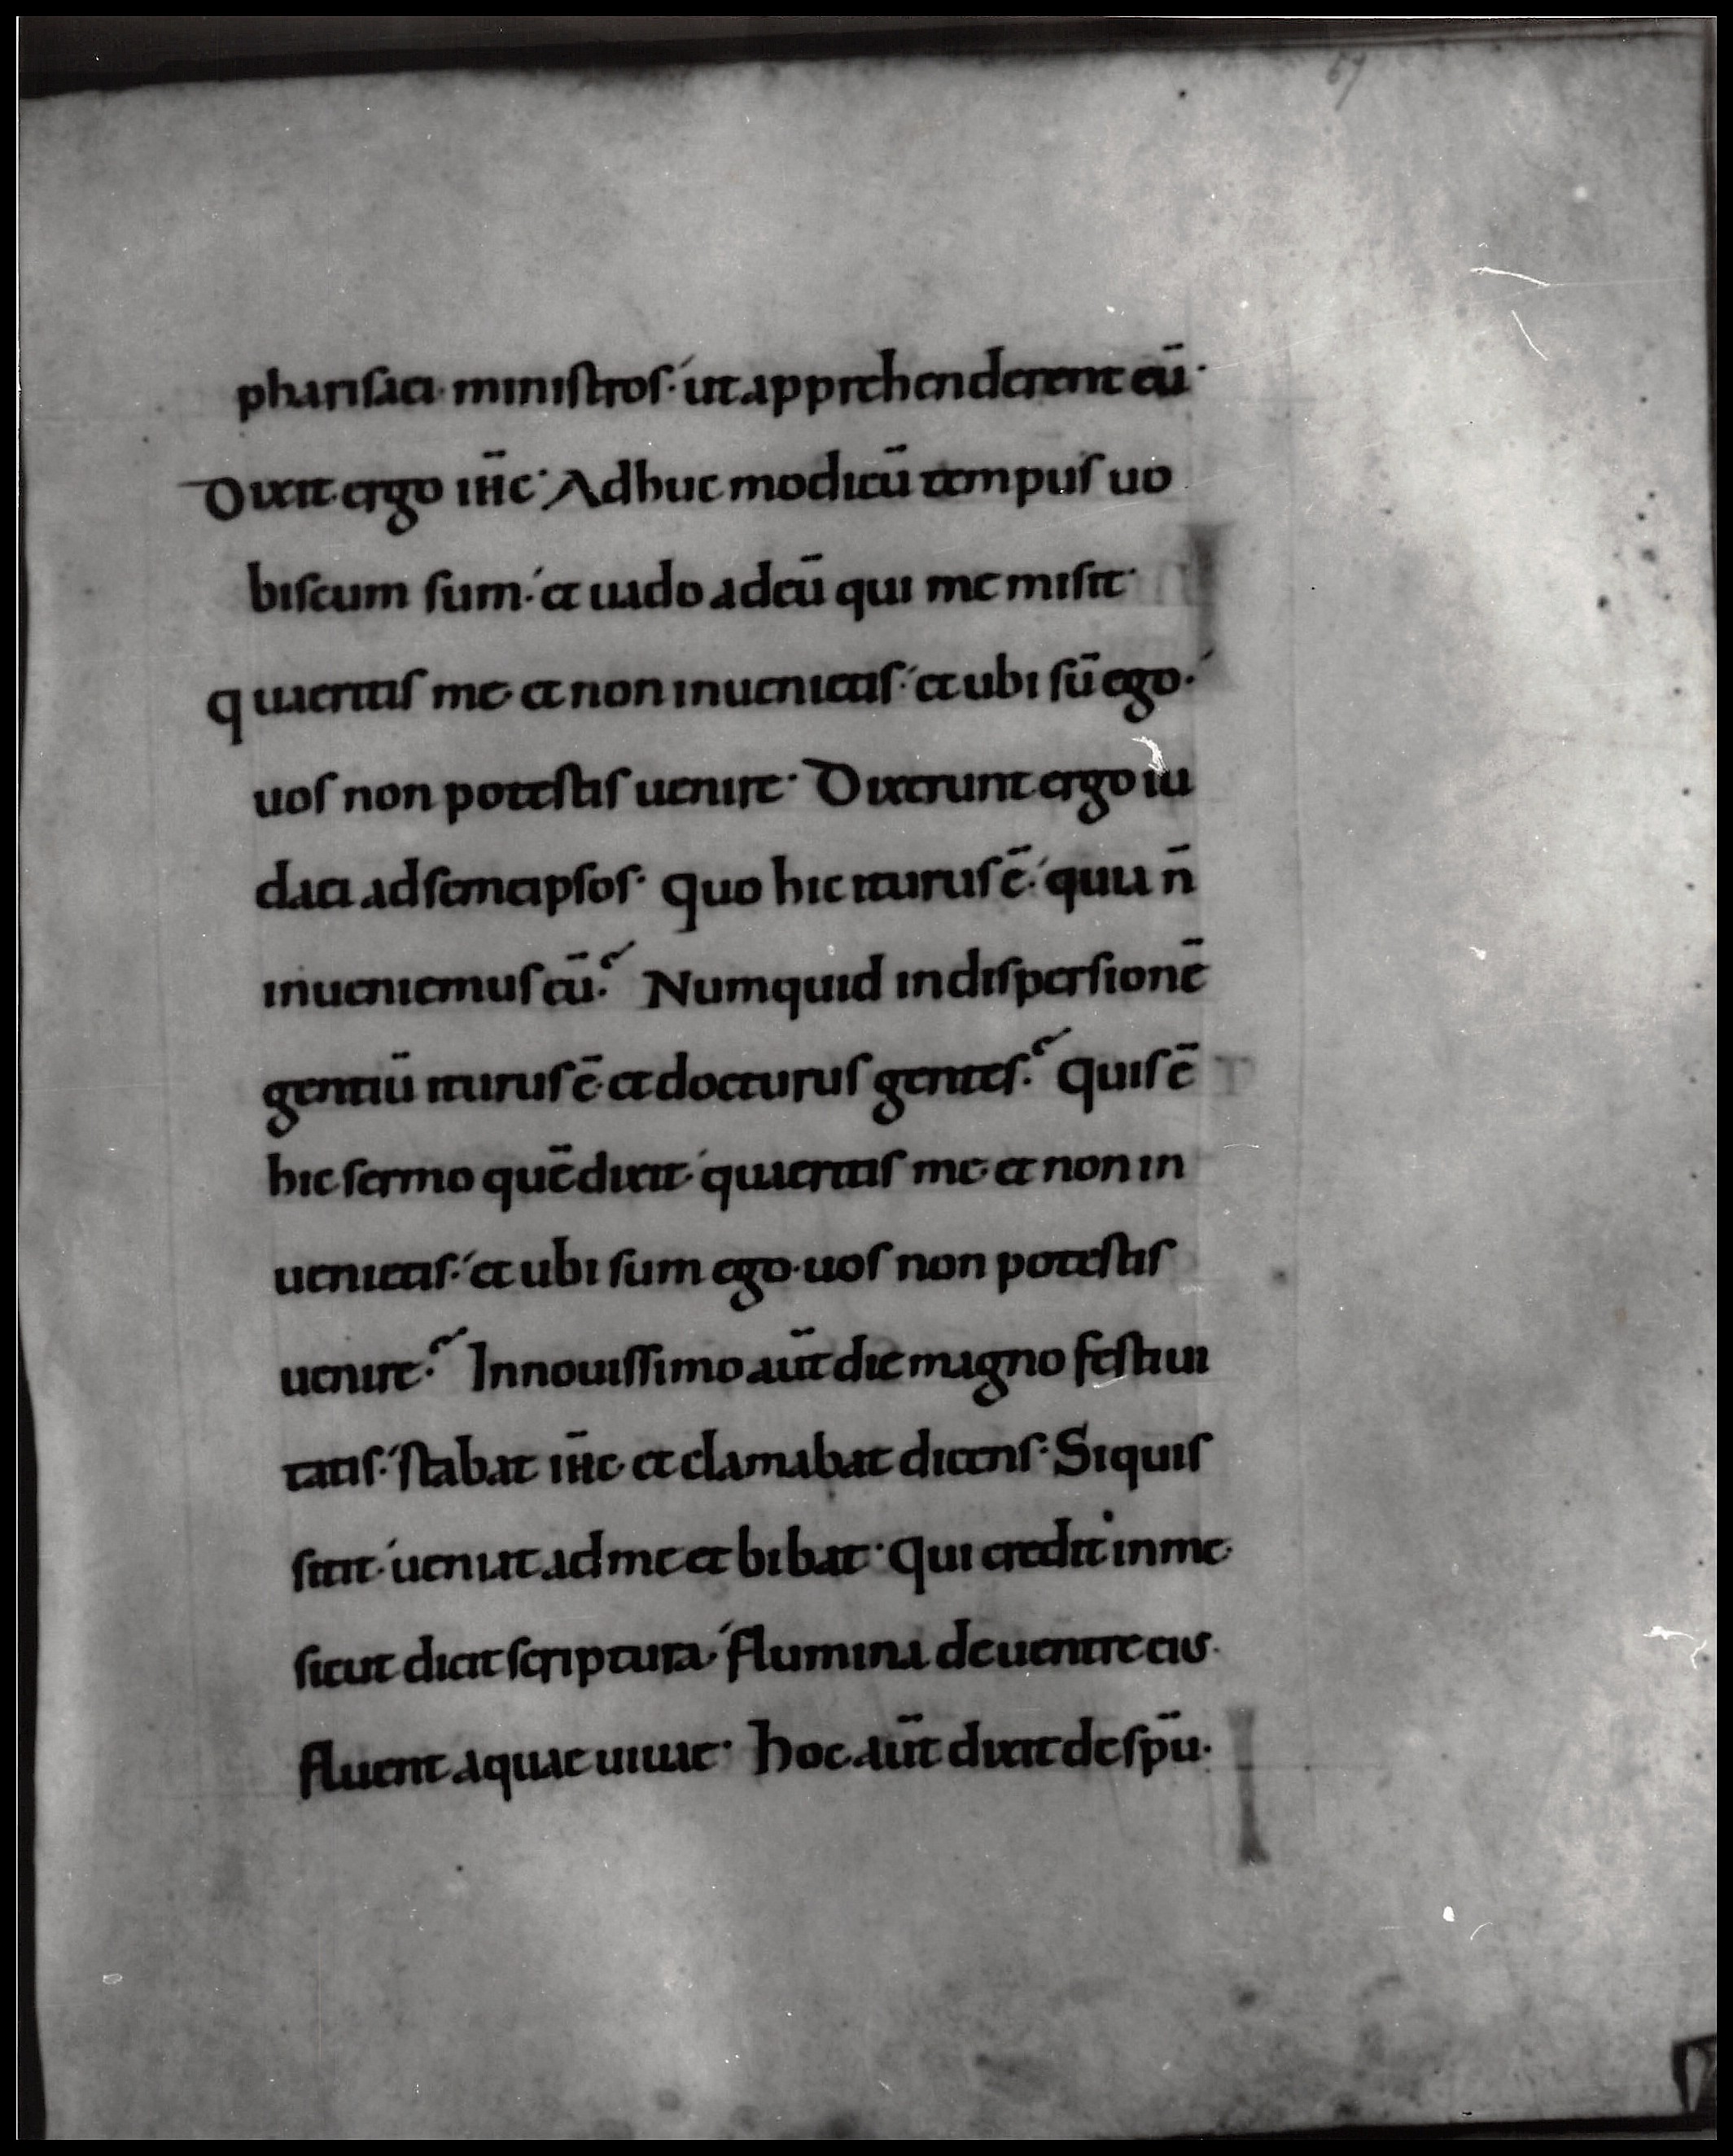 67
pharisaei· ministros·´ ut apprehenderent eū·
Dixit ergo ihc· Adhuc modicū tempus uo
biscum sum·´ et uado ad eū qui me misit·
quaeritis me· et non inuenietis·´ et ubi sū ego·´
uos non potestis uenire· Dixerunt ergo iu
daei ad semeipsos· quo hic iturus ē·´ quia n̄
inueniemus eū·? Numquid in dispersionē
gentiū iturus ē· et docturus gentes·? Quis ē
hic sermo quē dixit·´ quaeritis me· et non in
uenietis·´ et ubi sum ego· uos non potestis
uenire·? In nouissimo aūt die magno festiui
tatis·´ stabat ihc· et clamabat dicens· Siquis
sitit·´ ueniat ad me et bibat· Qui credit in me·
sicut dicit scriptura·´ flumina de uentre eius·
fluent aquae uiuae· hoc aūt dixit de spū·